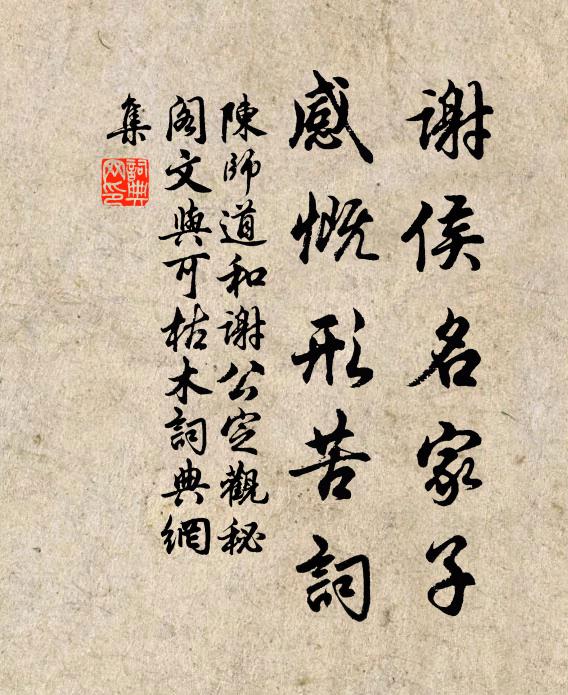 謝侯名家子
感慨形苦詞
陳師道和謝公定觀秘
閣文與可枯木詞典網
集
詞典
網印